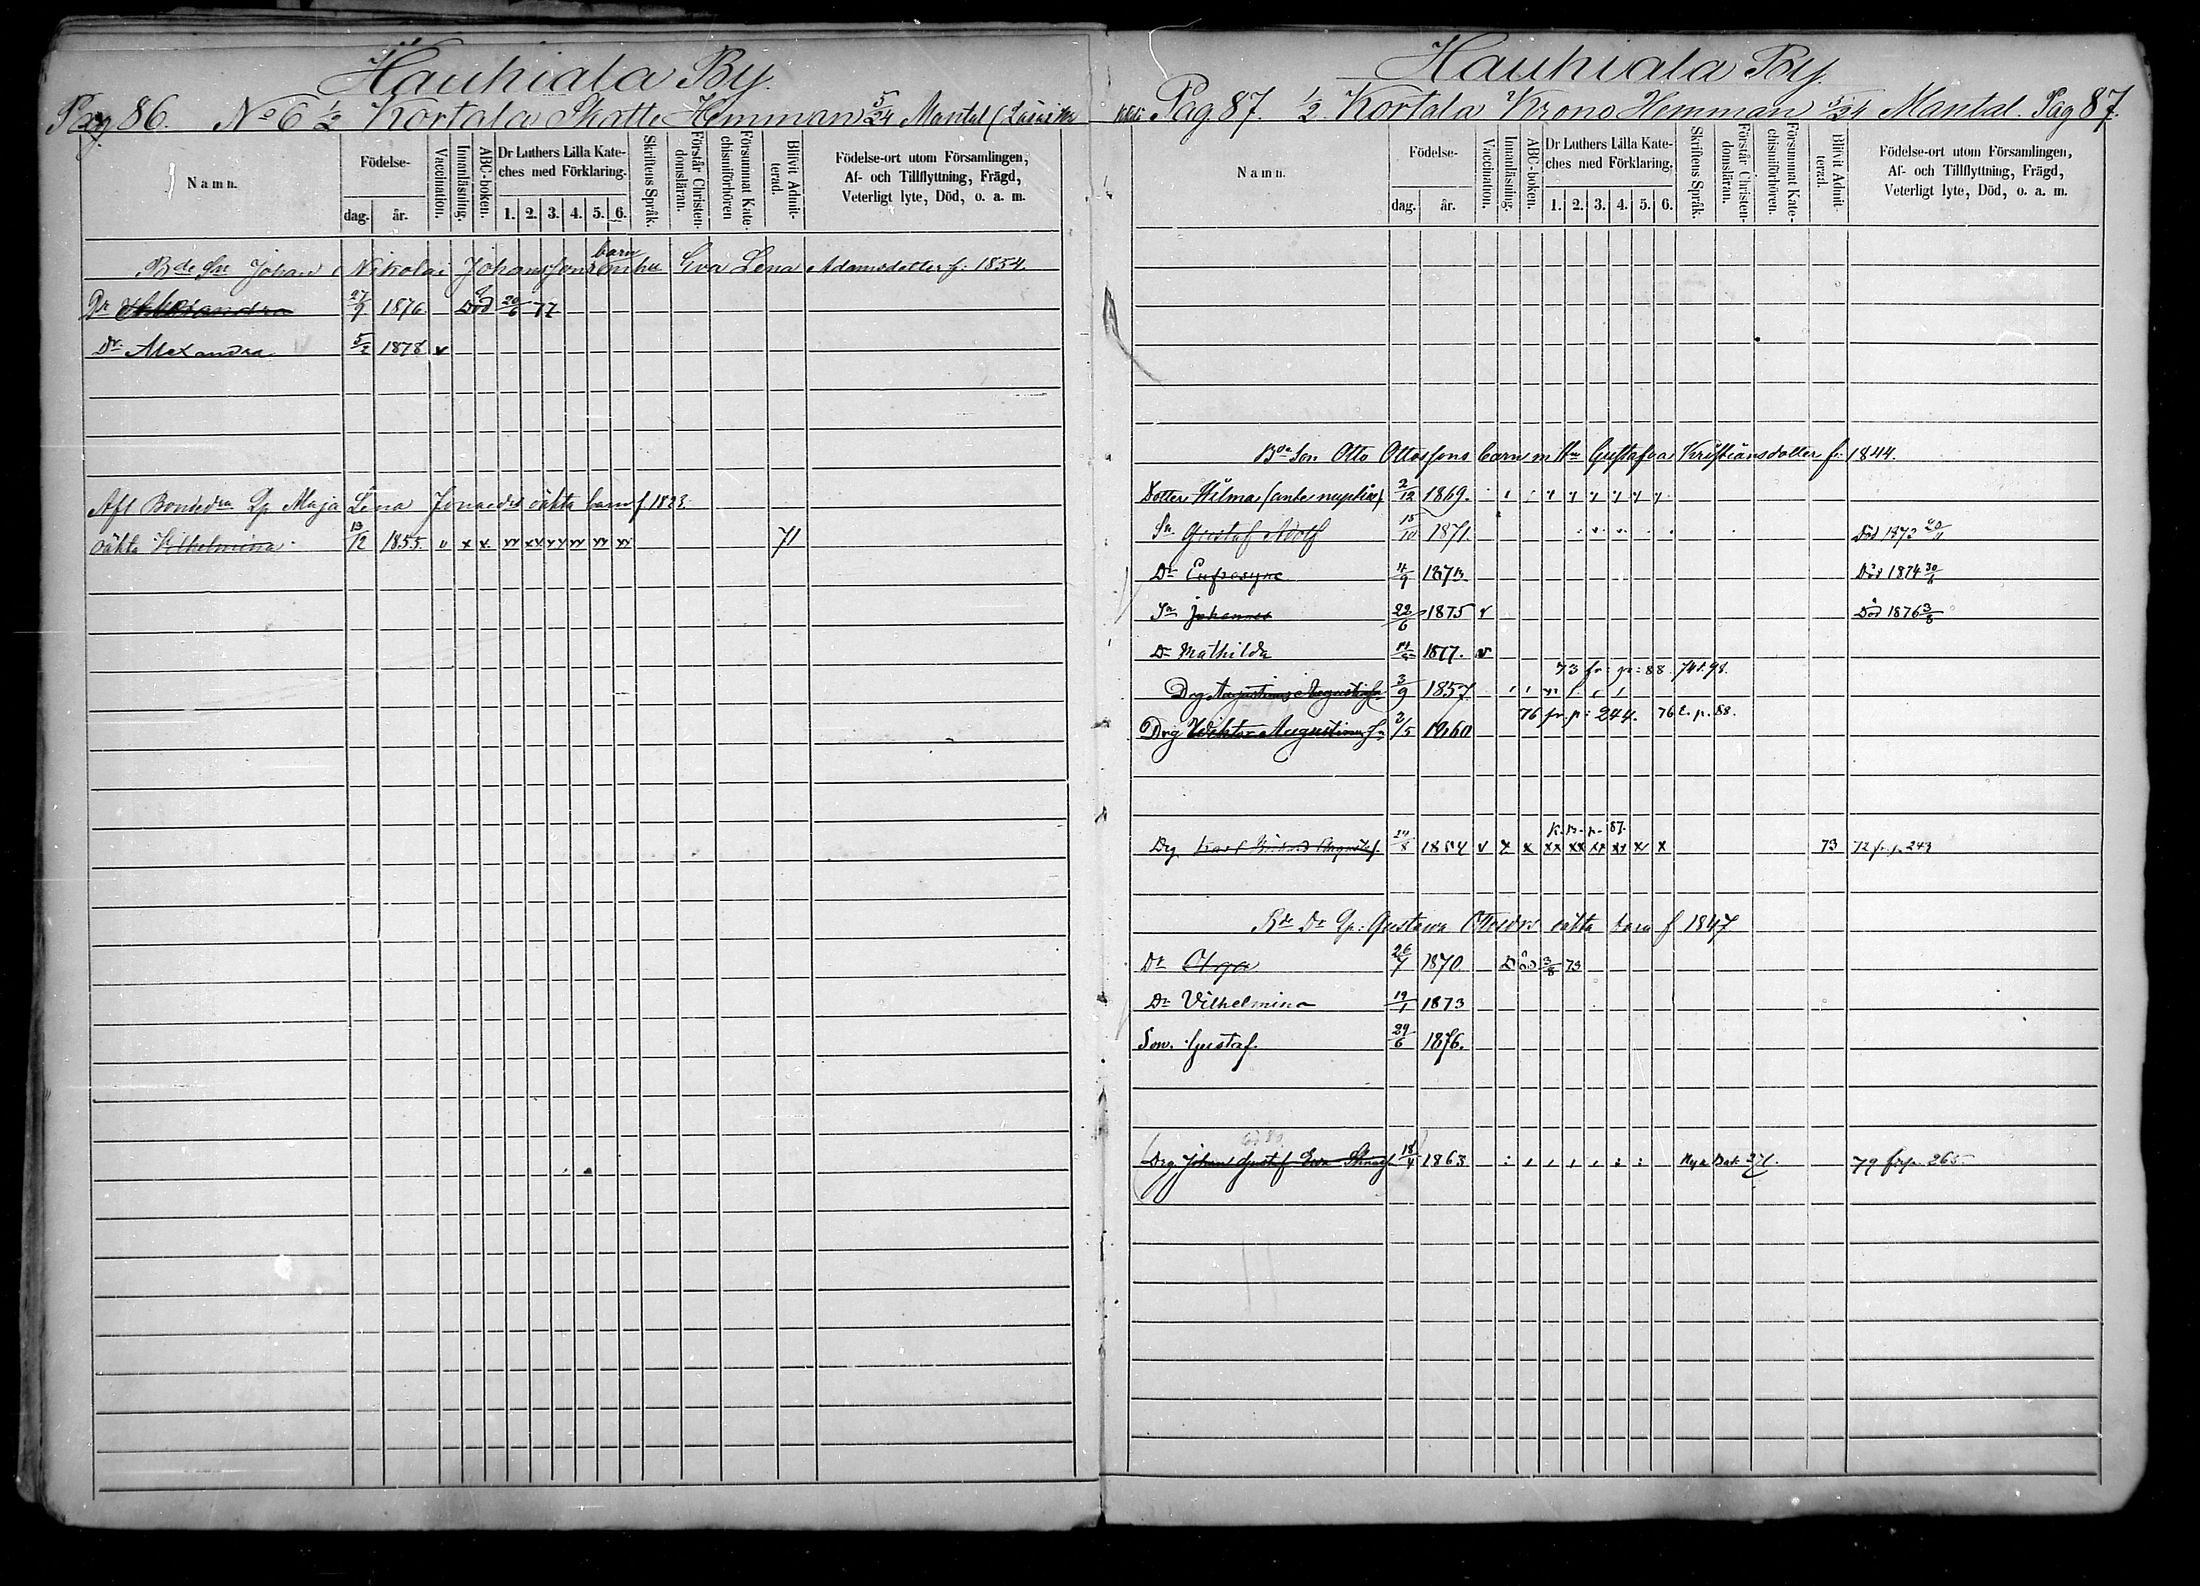 Hauhiala By.
Pag 86. No 6 ½ Kortala Skatte Hemman 5/24 Mantal
Namn.
Födelse-
dag.
år.
Vaccination.
Innanläsning.
ABC-boken.
Dr Luthers Lilla Kate-
ches med Förklaring.
1. 2. 3. 4. 5. 6.
Skriftens Språk.
Förstår Christen-
domsläran.
Försummat Kate-
chismiförhören
Blifvit Admit-
terad.
Födelse-ort utom Församlingen,
Af- och Tillflyttning, Frägd,
Veterligt lyte, Död, o. a. m.
Bde Sn Johan Nikolai Johanssons barn m hu Eva Lena Adamsdotter f. 1854.
Dr Alexandra 27/9 1876 Död 20/6 77
Dr Alexandra 5/2 1878 v
Afl Bondedra Maja Lena Jonaedrs oäkta barn f 1823
oäkta Vilhelmina 19/12 1855. v x x xx xx xx xx xx xx 71
Hauhiala By.
Pag 87. ½ Kortala Krono Hemman 5/24 Mantal. Pag 87.
Namn.
Födelse-
dag.
år.
Vaccination.
Innanläsning.
ABC-boken.
Dr Luthers Lilla Kate-
ches med Förklaring.
1. 2. 3. 4. 5. 6.
Skriftens Språk.
Förstår Christen-
domsläran.
Försummat Kate-
chismiförhören.
Blifvit Admit-
terad.
Födelse-ort utom Församlingen,
Af- och Tillflyttning, Frägd,
Veterligt lyte, Död, o. a. m.
Bde Son Otto Ottossons barn m Hu Gustafva Kristiansdotter f. 1844.
Dotter Hilma (ante nuptias) 2/12 1869.
Sn Gustaf Adolf 15/10 1871. Död 1873 20/11
Dr Eufrosyne 4/9 1873 Död 1874 30/11
Sn Johannes 22/6 1875 v Död 1876 3/8
Dr Mathilda 1877. v
73 fr. p: 88. 74 t. 98.
Drg Augustinus Augustinsn 3/9 1857
76 fr. p: 244. 76 t. p. 88.
Drg Viktor Augustinus Sn 2/5 1860
K. B. p. 87.
Drg Karl 1854 v x x xx xx xx xx x x 73 72 fr. p. 243
Bde Dr Gustava Ottosdrs oäkta barn f 1847
Dr Olga 26/7 1870 Död 3/8 73
Dr Vilhelmina 19/1 1873
Son Gustaf. 29/6 1876.
Drg Johan Gustaf 18/4 1863 Nya Bok 271. 79 fr p. 265.